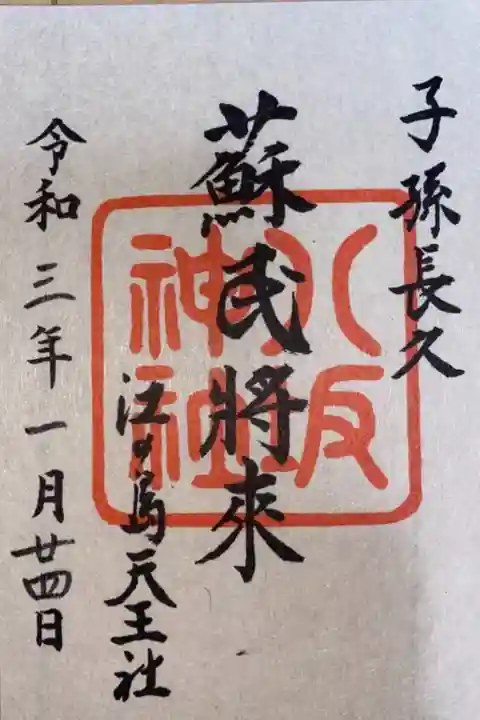 子孫長久
蘇民將來
江ノ島天王社
令和三年一月廿四日
八坂
神社